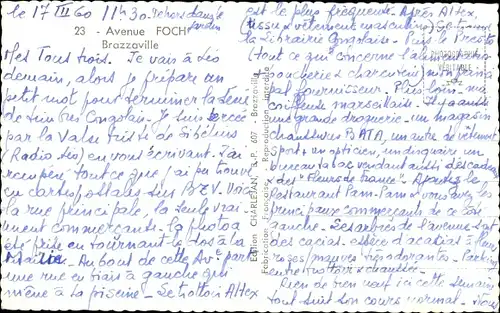 le 17 III 60 11h30 dehors dans le jardin
23 - Avenue FOCH
Brazzaville
Mes Tous trois. Je vais à
demain, alors je prépare un
petit mot pour terminer la
de timbres Congolais. Je suis bercée
par la Valse triste de Sibelius
(Radio) en vous écrivant. J'ai
récupéré tout ce que j'ai pu trouver
en cartes postales sur BZV. Voici
la rue principale, la seule vrai
ment commerçante. La photo a
été prise en tournant le dos à la
Mairie. Au bout de cette Av. part
une rue en biais à gauche qui
mène à la piscine. Le trottoir Altex
est le plus fréquenté. Après Altex,
(tissus et vêtements masculins)
la librairie Congolaise. Puis le
(tout ce qui concerne l'alimentation
boucherie et charcuterie) mon principal
fournisseur. Plus loin ma
coiffeuse marseillaise. Il y a aussi
une grande droguerie - un magasin
chaussures BATA, un autre de vêtements
sport, un opticien, un disquaire, un
bureau tabac vendant aussi des cadeaux
des "Fleurs de France". Ajoutez le
restaurant Pam-Pam et vous avez les
principaux commerçants de ce côté
gauche. Les arbres de l'avenue sont
des cacias, espèce d'acacias à fleurs
roses, mauves très odorantes. Parking
entre trottoir et chaussée.
Rien de neuf ici cette semaine
tout suit son cours normal.
Edition CHARLETAN, B.P. 607 - Brazzaville
PHOTOGRAPHIE
VÉRITABLE